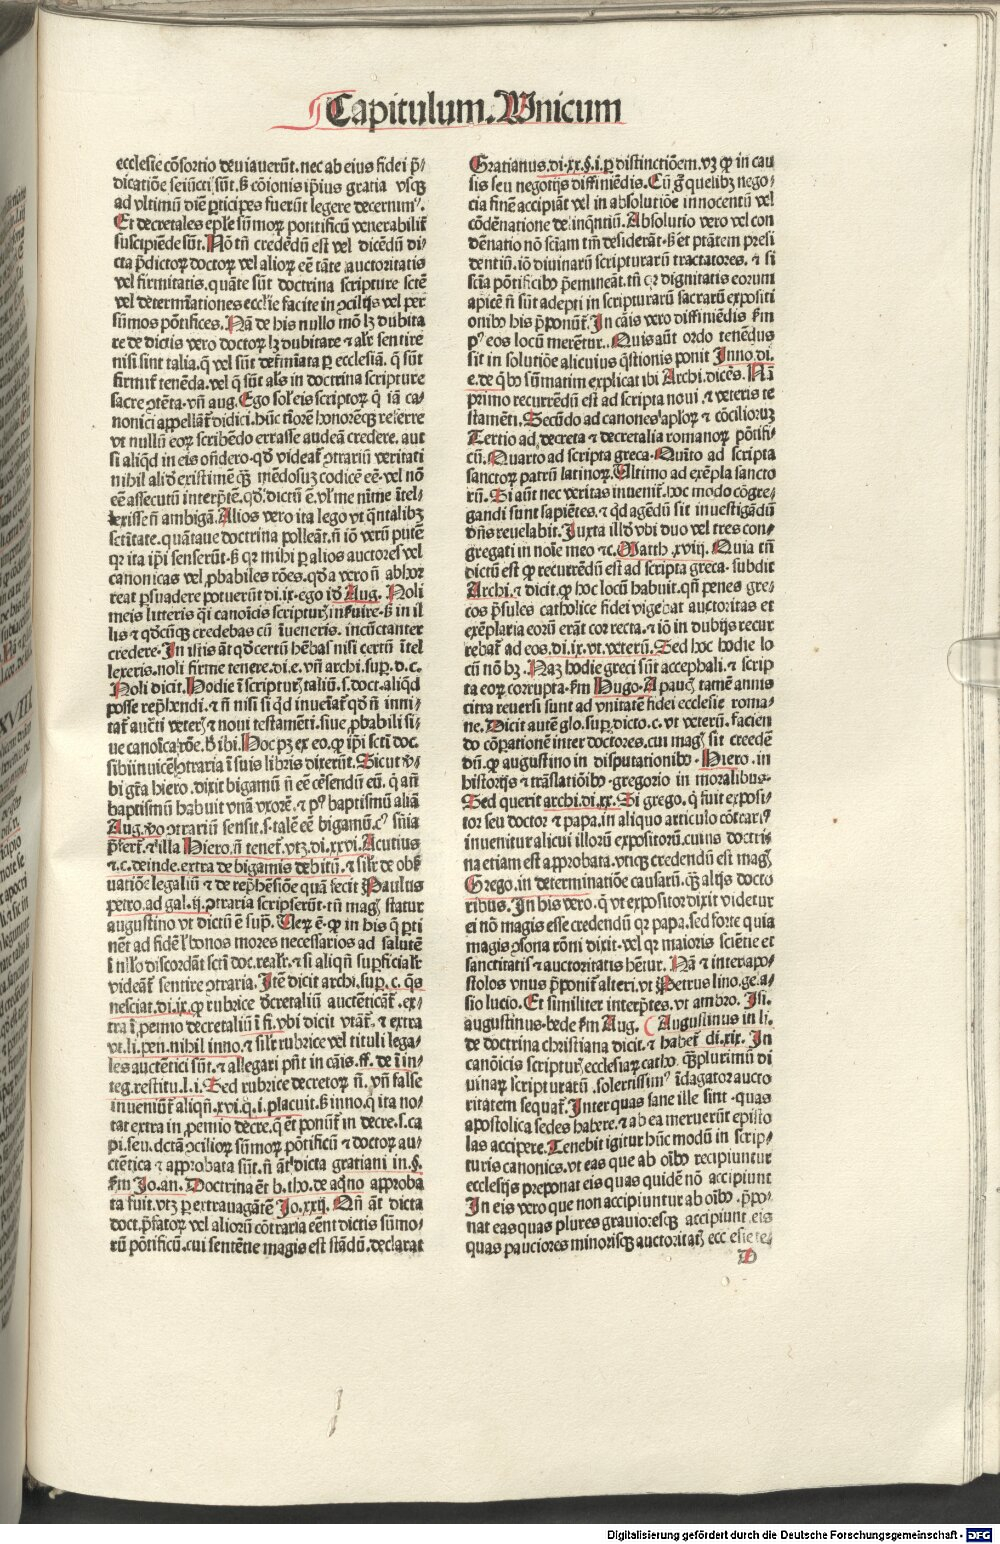 Capitulum. Unicum
ecclesie cōsortio deuiauerūt. nec ab eius fidei p̄-
dicatiōe seiūcti sūt. ß cōionis ip̄ius gratia vsqꝫ
ad vltimū diē ꝑticipes fuerūt legere decernimꝰ.
Et decretales ep̄le sūmoꝝ pontificū venerabilit̄
suscipiēde sūt. Nō tn̄ credēdū est vel dicēdū di-
cta p̄dictoꝝ doctoꝝ vel alioꝝ eē tāte auctoritatis
vel firmitatis. quāte sūt doctrina scripture sctē
vel determinationes eccl̄ie facite in ꝯcilijs vel per
sūmos pōtifices. Nā de his nullo mō lꝫ dubita
re de dictis vero doctoꝝ lꝫ dubitare ⁊ alr̄ sentire
nisi sint talia. q̄ vel sūt det̄miata ꝑ ecclesiā. q̄ sūt
firmit̄ tenēda. vel q̄ sūt al̄s in doctrina scripture
sacre ꝯtēta. vn̄ aug. Ego sol̄ eis scriptoꝝ q̄ iā ca-
nonici appellāt̄ didici. hūc timorē honorēqꝫ referre
vt nullū eoꝝ scribēdo errasse audeā credere. aut
si aliqd̄ in eis offēdero. qd̄ videat̄ ꝯtrariū veritati
nihil aliđ existimē qꝫ mēdosuꝫ codicē eē. vel nō
eē assecutū interp̄tē. qd̄ dictū ē. vl̓ me nīme ītel-
lexisse n̄ ambigā. Alios vero ita lego vt q̄ntalibꝫ
sctītate. quātaue doctrina polleāt. n̄ iō verū putē
qꝛ ita ip̄i senserūt. ß qꝛ mihi ꝑ alios auctores vel
canonicas vel ꝓbabiles rōes. qd̄ a vero n̄ abhor
reat ꝑsuadere potuerūt di. ix. ego iđ Aug. Noli
meis litteris q̄i canoīcis scripturꝭ inẜuire. ß in il
lis ⁊ qd̄cūqꝫ credebas cū īueneris. incūctanter
credere. In istis āt qd̄ certū hēbas nisi certū ītel
lexeris. noli firme tenere. di. e. vn̄ archi. suꝑ. d. c.
Noli dicit. Hodie ī scripturꝭ taliū. s. doct. aliqd̄
posse rep̄hendi. ⁊ n̄ nisi si qd̄ inueīat̄ qd̄ n̄ inni-
tat̄ auc̄ti veterꝭ ⁊ noui testamēti. siue ꝓbabili si-
ue canoīca rōe. h̓ ibi. Hoc pꝫ ex eo. ꝙ ip̄i sctī doc.
sibiinuicē ꝯtraria ī suis libris dixerūt. Sicut v̓-
bi gr̄a hiero. dixit bigamū n̄ eē cēsendū eū. q̄ an̄
baptismū habuit vnā vxorē. ⁊ pꝰ baptismū aliā
Aug. v̓o ꝯtrariū sensit. s. talē eē bigamū. cꝰ sn̄ia
p̄fert̄. ⁊ illa Hiero. n̄ tenet̄. vtꝫ di. xxvi. Acutius
⁊. c. deinde. extra de bigamis debitū. ⁊ silr̄ de obẜ
uatiōe legaliū ⁊ de rep̄hēsiōe quā fecit Paulus
petro. ad gal. ij. ꝯtraria scripserūt. tn̄ magꝭ statur
augustino vt dictū ē sup̄. Uerꝝ ē. ꝙ in his q̄ ꝑti
nēt ad fidē l̓ bonos mores necessarios ad salutē
ī nullo discordāt sctī doc. realr̄. ⁊ si aliqn̄ suꝑficialr̄
videāt̄ sentire ꝯtraria. Itē dicit archi. suꝑ. c. q̄s
nesciat. di. ix. ꝙ rubrice đcretaliū auctēticāt̄. ex-
tra ī ꝓemio decretaliū ī fi. vbi dicit vtāt̄. ⁊ extra
vt. li. pen. nihil inno. ⁊ silr̄ rubrice vel tituli lega-
les auctētici sūt. ⁊ allegari pn̄t in cāis. ff. de ī in-
teg. restitu. l. i. Sed rubrice decretoꝝ n̄. vn̄ false
inueniūt̄ aliqn̄. xvi. q. i. placuit. ß inno. q ita no-
tat extra in ꝓemio decre. q̄ eēt ponūt̄ in decre. s. ca
pi. seu. dcta ꝯcilioꝝ sūmoꝝ pōtificū ⁊ doctoꝝ au-
ctētica ⁊ approbata sūt. n̄ āt dicta gratiani in. §.
ẜm Jo. an. Doctrina ēt b. tho. de aq̄no approba
ta fuit. vtꝫ ꝑ extrauagātē Jo. xxij. Qn̄ āt dicta
doct. p̄fatoꝝ vel aliorū cōtraria eēnt dictis sūmo-
rū pōtificū. cui sentētie magis est stādū. declarat
Gratianus. di. xx. §. i. ꝑ distinctiōem. vꝫ ꝙ in cau
sis seu negotijs diffiniēdis. Cū g̊ quelibꝫ nego-
cia finē accipiāt vel in absolutiōe innocentū vel
cōdēnatione delinq̄ntiū. Absolutio vero vel con
dēnatio nō sciam tm̄ desiderāt. ß et ptātem presi
dentiū. iō diuinarū scripturarū tractatores. ⁊ si
scia pōtificibꝰ p̄emineāt. tn̄ qꝛ dignitatis eorum
apicē n̄ sūt adepti in scripturarū sacrarū expositi
onibꝰ his p̄ponūt̄. In cāis vero diffiniēdis ẜm
pꝰ eos locū merētur. Quis aūt ordo tenēdus
sit in solutiōe alicuius q̄stionis ponit Inno. di.
e. de q̄bꝰ sūmatim explicat ibi Archi. dicēs. Nā
primo recurrēdū est ad scripta noui. ⁊ veteris te
stamēti. Secūdo ad canones ap̄loꝝ ⁊ cōcilioruꝫ
Tertio ad decreta ⁊ decretalia romanoꝝ pōtifi-
cū. Quarto ad scripta greca. Quīto ad scripta
sanctoꝝ patrū latinoꝝ. Ultimo ad exēpla sancto
rū. Si aūt nec veritas inuenit̄. hoc modo cōgre-
gandi sunt sapiētes. ⁊ qd̄ agēdū sit inuestigādū
dn̄s reuelabit. Iuxta illđ vbi duo vel tres con-
gregati in noīe meo ⁊c. Matth. xviij. Quia tn̄
dictū est ꝙ recurrēdū est ad scripta greca. subdit
Archi. ⁊ dicit. ꝙ hoc locū habuit. qn̄ penes gre-
cos p̄sules catholice fidei vigebat auctoritas et
exēplaria eorū erāt correcta. ⁊ iō in dubijs recur
rebat̄ ad eos. di. ix. vt. veterū. Sed hoc hodie lo
cū nō hꝫ. Naꝫ hodie greci sūt accephali. ⁊ scrip
ta eoꝝ corrupta. ẜm Hugo. A paucꝭ tamē annis
citra reuersi sunt ad vnitatē fidei ecclesie roma-
ne. Dicit autē glo. suꝑ dicto. c. vt veterū. facien
do cōparationē inter doctores. cui magꝭ sit creedē
dū. ꝙ augustino in disputationibꝰ. Hiero. in
historijs ⁊ trāslatiōibꝰ. gregorio in moralibus.
Sed querit archi. di. xx. Si grego. q̄ fuit exposi-
tor seu doctor ⁊ papa. in aliquo articulo cōtrariꝰ
inuenitur alicui illorū expositorū. cuius doctri-
na etiam est approbata. vtiqꝫ credendū est magꝭ
Grego. in determinatiōe causarū. qꝫ alijs docto
ribus. In his vero. q̄ vt expositor dixit videtur
ei nō magis esse credendū qꝛ papa. sed forte quia
magis ꝯsona rōni dixit. vel qꝛ maioris sciētie et
sanctitatis ⁊ auctoritatis hētur. Nā ⁊ inter apo-
stolos vnus p̄ponit̄ alteri. vt Petrus lino. ge. a-
sio lucio. Et similiter interp̄tes. vt ambro. Isi.
augustinus. bede ẜm Aug. Augustinus in li.
de doctrina christiana dicit. ⁊ habet̄ di. xix. In
canōicis scripturꝭ ecclesiaꝝ catho. qꝫplurimū di
uinaꝝ scripturarū. solertissimꝰ īdagator aucto
ritatem sequat̄. Inter quas sane ille sint. quas
apostolica sedes habere. ⁊ ab ea meruerūt episto
las accipere. Tenebit igitur hūc modū in scrip-
turis canonicis. vt eas que ab oībꝰ recipiuntur
ecclesijs preponat eis quas quidē nō accipiunt
In eis vero que non accipiuntur ab oībꝰ. p̄po-
nat eas quas plures grauioresqꝫ accipiunt eis
quas pauciores minorisqꝫ auctoritatꝭ ecclesie te-
D
Digitalisierung gefördert durch die Deutsche Forschungsgemeinschaft - DFG